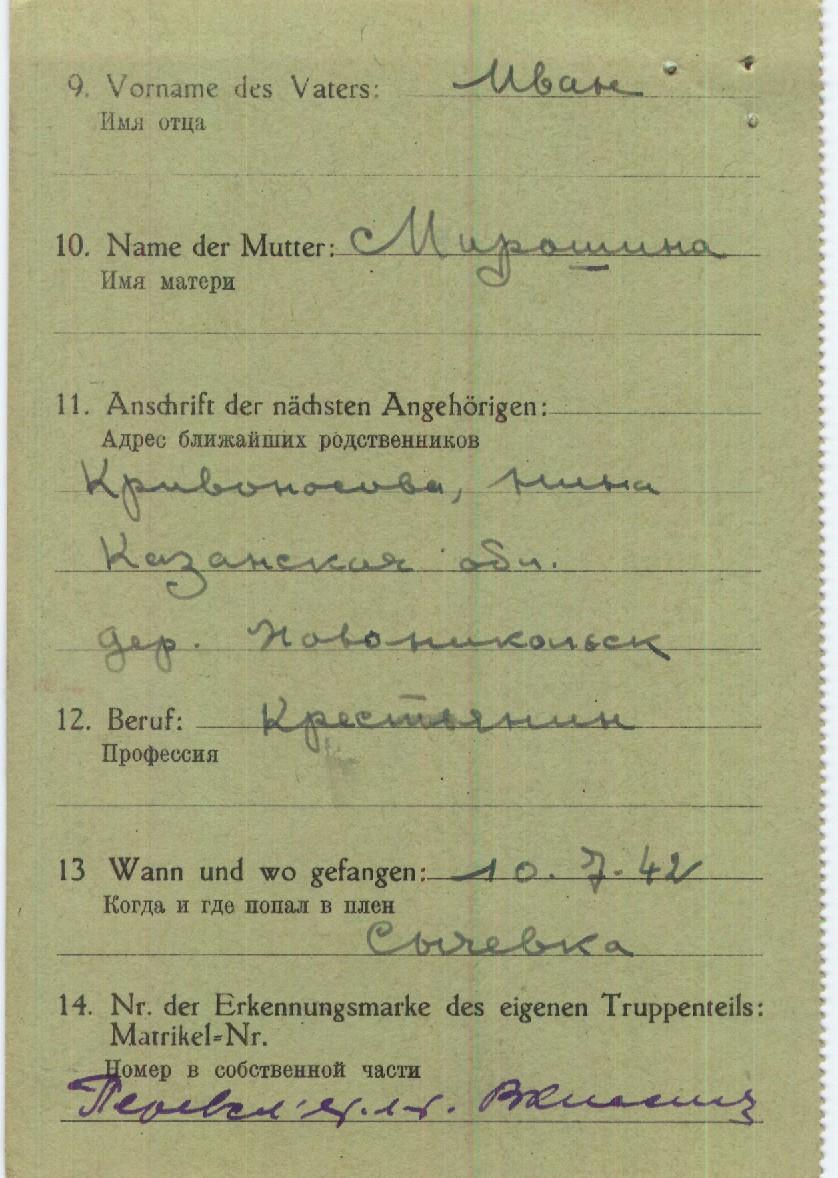 9. Vorname des Vaters: Иван
Имя отца
10. Name der Mutter: Мирошина
Имя матери
11. Anschrift der nächsten Angehörigen:
Адрес ближайших родственников
Кривоносова, Нина
Казанская обл.
дер. Новоникольск
12. Beruf: Крестьянин
Профессия
13 Wann und wo gefangen: 10.7.42
Когда и где попал в плен
Сычевка
14. Nr. der Erkennungsmarke des eigenen Truppenteils:
Matrikel-Nr.
Номер в собственной части